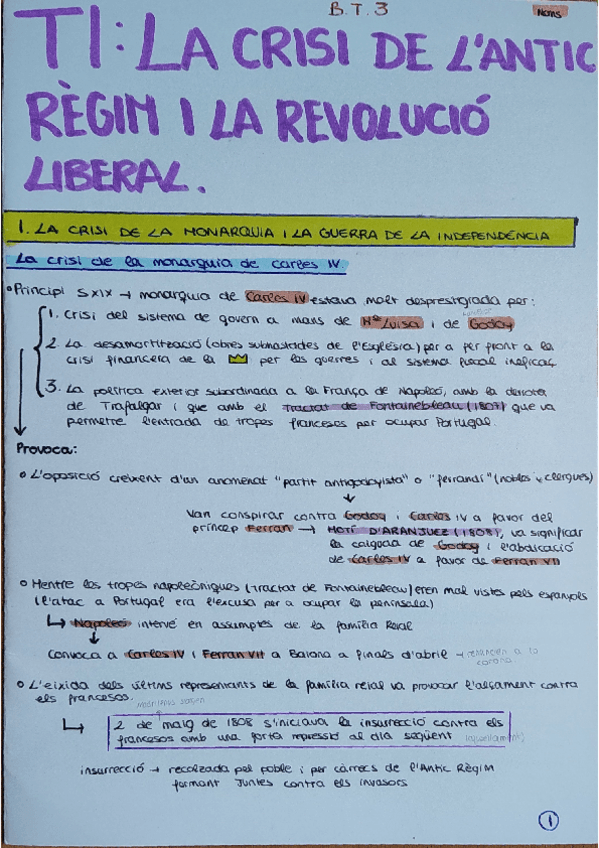 B.T.3
Noms
T1: LA CRISI DE L'ANTIC
RÈGIM I LA REVOLUCIÓ
LIBERAL.
1. LA CRISI DE LA MONARQUIA I LA GUERRA DE LA INDEPENDÈNCIA
La crisi de la monarquia de Carles IV.
• Principi S XIX → monarquia de Carles IV estava molt desprestigiada per:
1. Crisi del sistema de govern a mans de Mª Luisa i de Godoy
2. La desamortització (obres subhastades de l'Església) per a fer front a la
crisi financera de la per les guerres i al sistema fiscal ineficaç
3. La política exterior subordinada a la França de Napoleó, amb la derrota
de Trafalgar i que amb el Tractat de Fontainebleau (1807) que va
permetre l'entrada de tropes franceses per ocupar Portugal.
Provoca:
• L'oposició creixent d'un anomenat "partit antigodoyista" o "ferrandí" (nobles y clergues)
Van conspirar contra Godoy i Carles IV a favor del
príncep Ferran → MOTÍ D'ARANJUEZ (1808), va significar
la caiguda de Godoy i l'abdicació
de Carles IV a favor de Ferran VII
• Mentre les tropes napoleòniques (Tractat de Fontainebleau) eren mal vistes pels espanyols
(l'atac a Portugal era l'excusa per a ocupar la península)
↳ Napoleó intervé en assumptes de la família Reial
Convoca a Carles IV i Ferran VII a Baiona a finals d'abril → renuncien a la
corona
• L'eixida dels últims representants de la família reial va provocar l'alçament contra
els francesos.
↳ 2 de maig de 1808 s'iniciava la insurrecció contra els
francesos amb una forta repressió al dia següent (afusellaments)
insurrecció → recolzada pel poble i per càrrecs de l'Antic Règim
formant Juntes contra els invasors
1